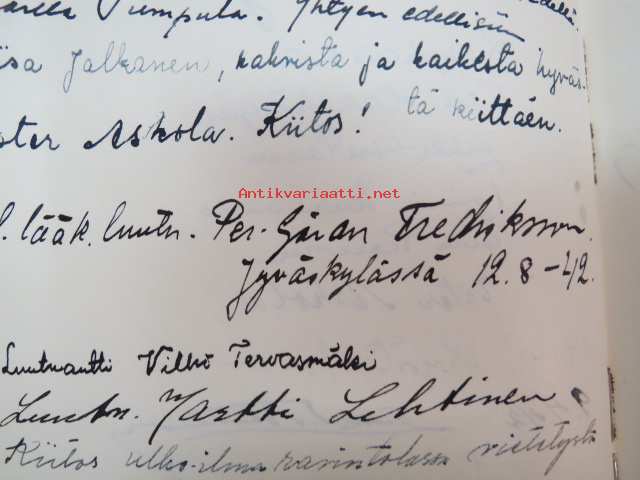 Pumpula. Yhtyen edellisiin
Jalkanen, kahvista ja kaikesta hyväs-
tä kiittäen.
ster Askola. Kiitos!
Antikvariaatti.net
lääk. luutn. Per-Göran Fredriksson.
Jyväskylässä 12.8-42.
Luutnantti Vilho Tervasmäki
Luutn. Martti Lehtinen
Kiitos ulko-ilma ravintolassa vietetystä